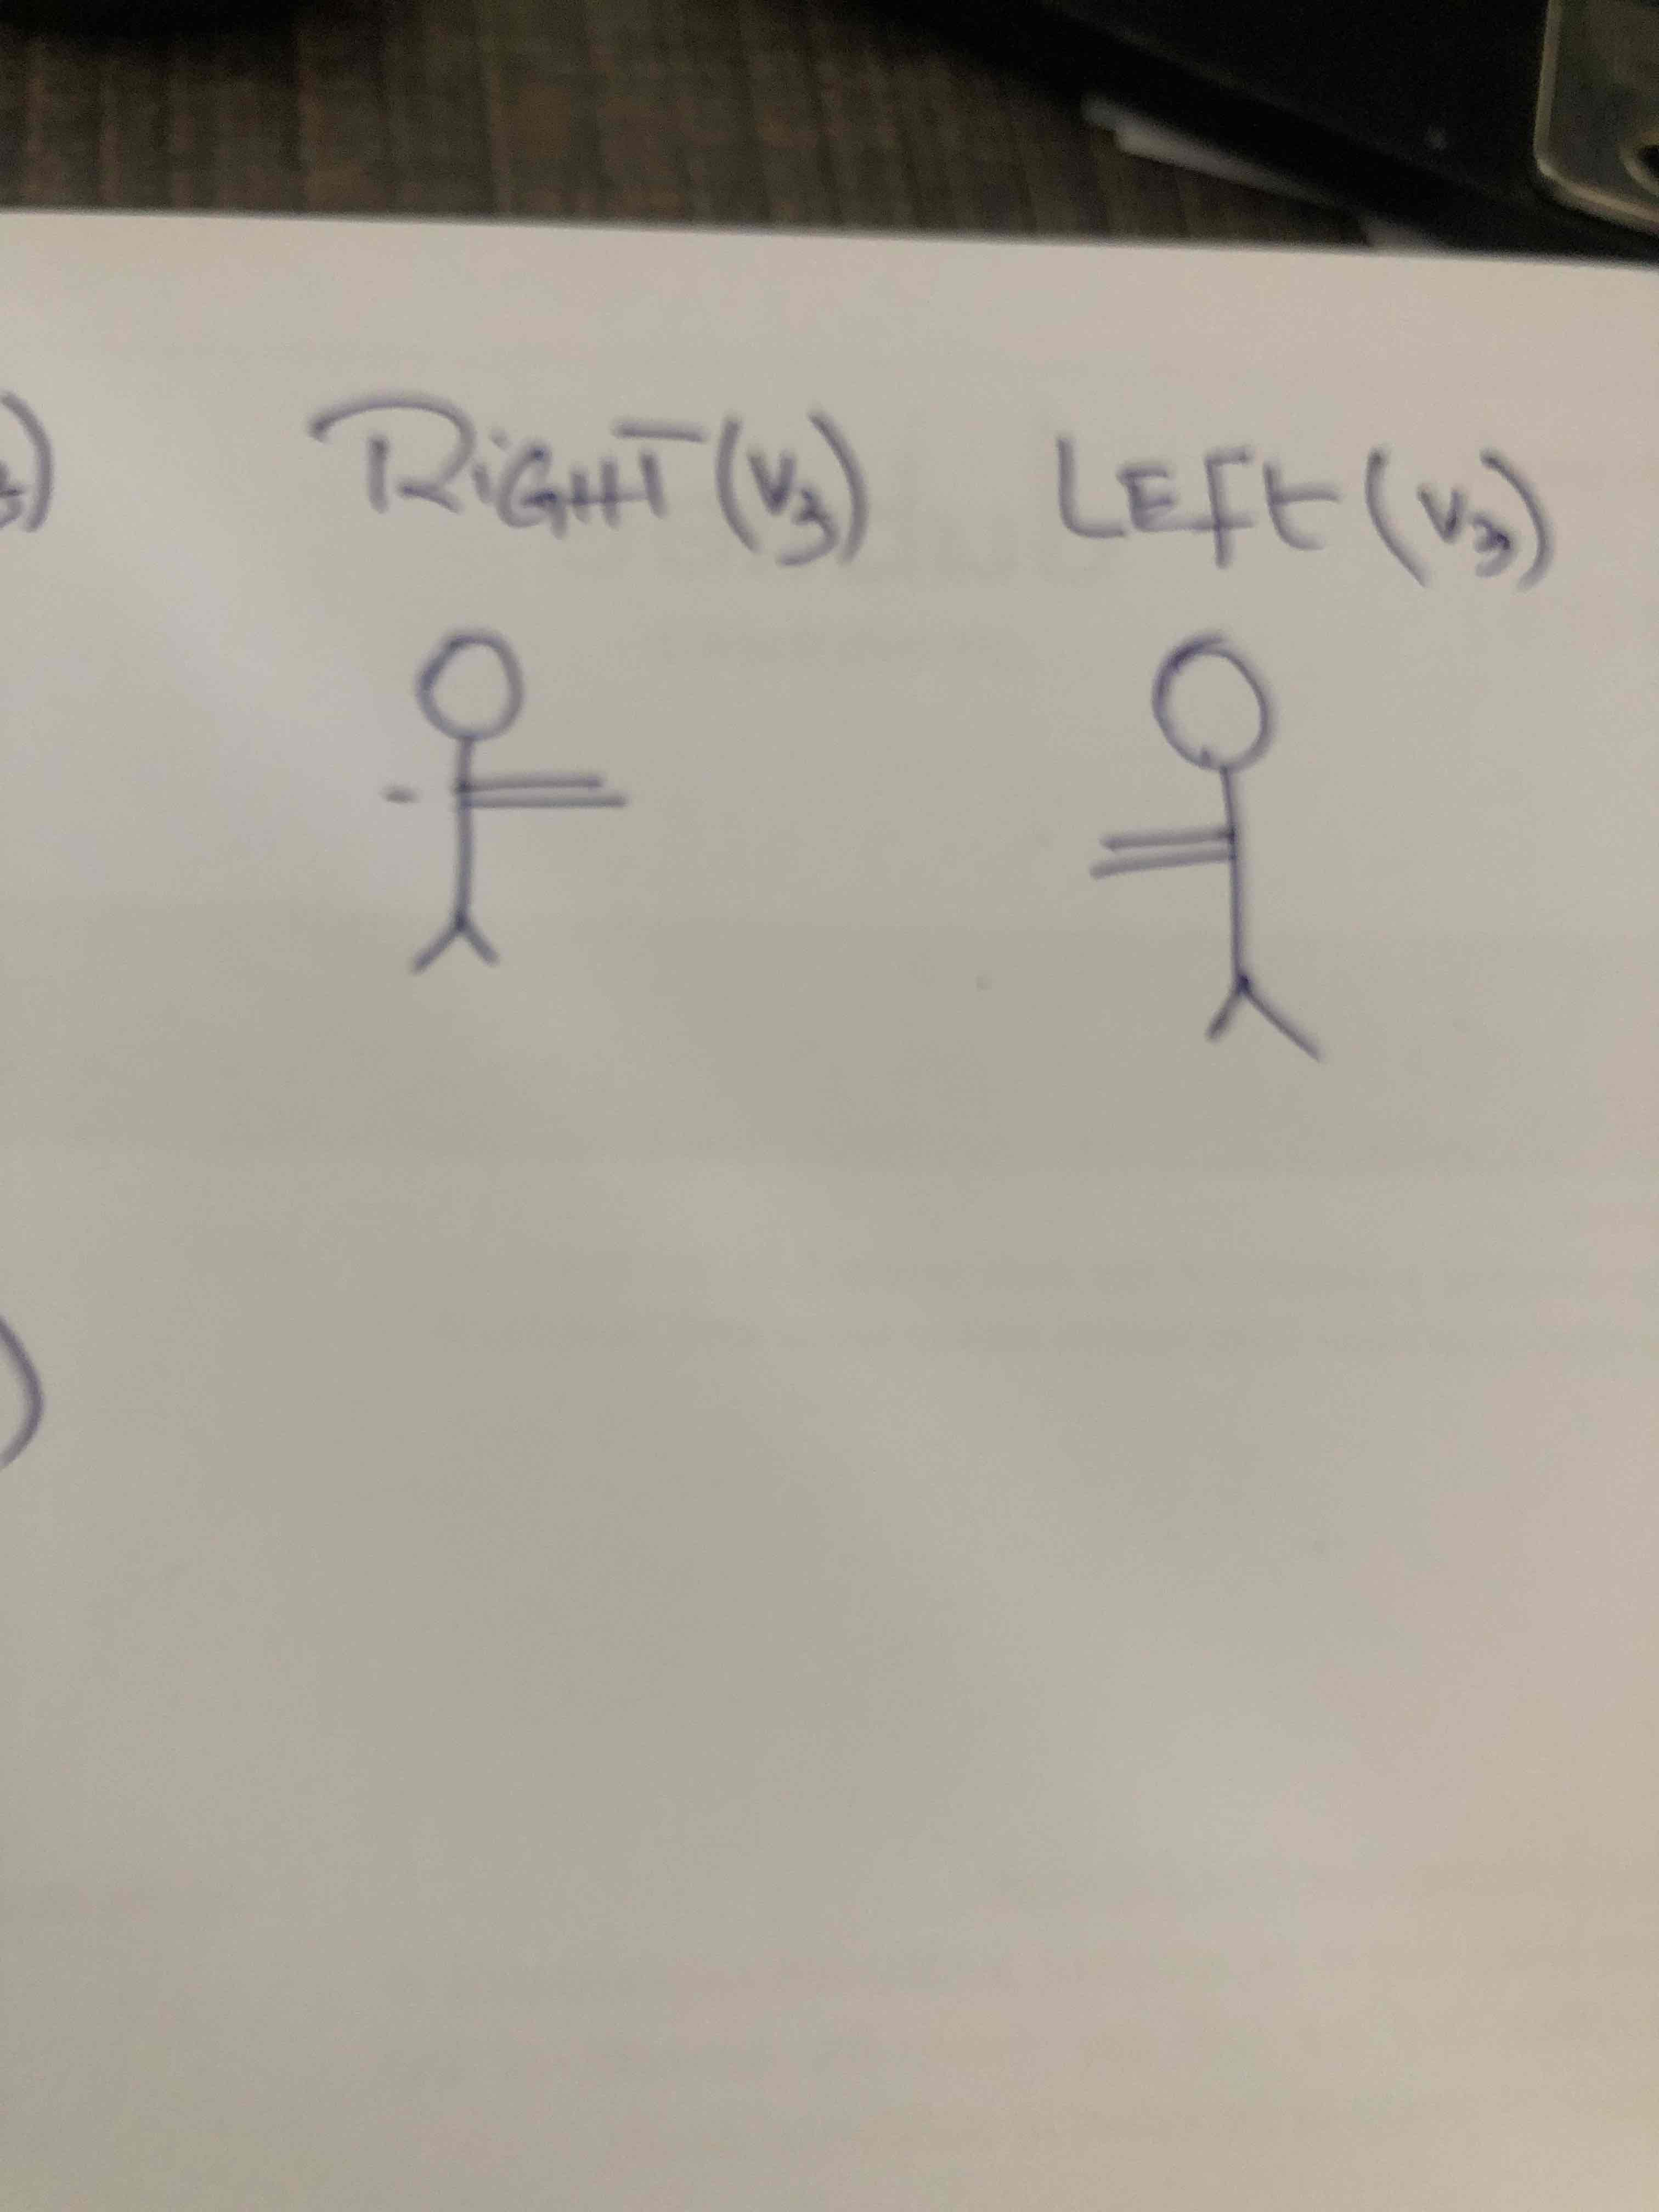 RiGHT (V3) LEFt (V3)